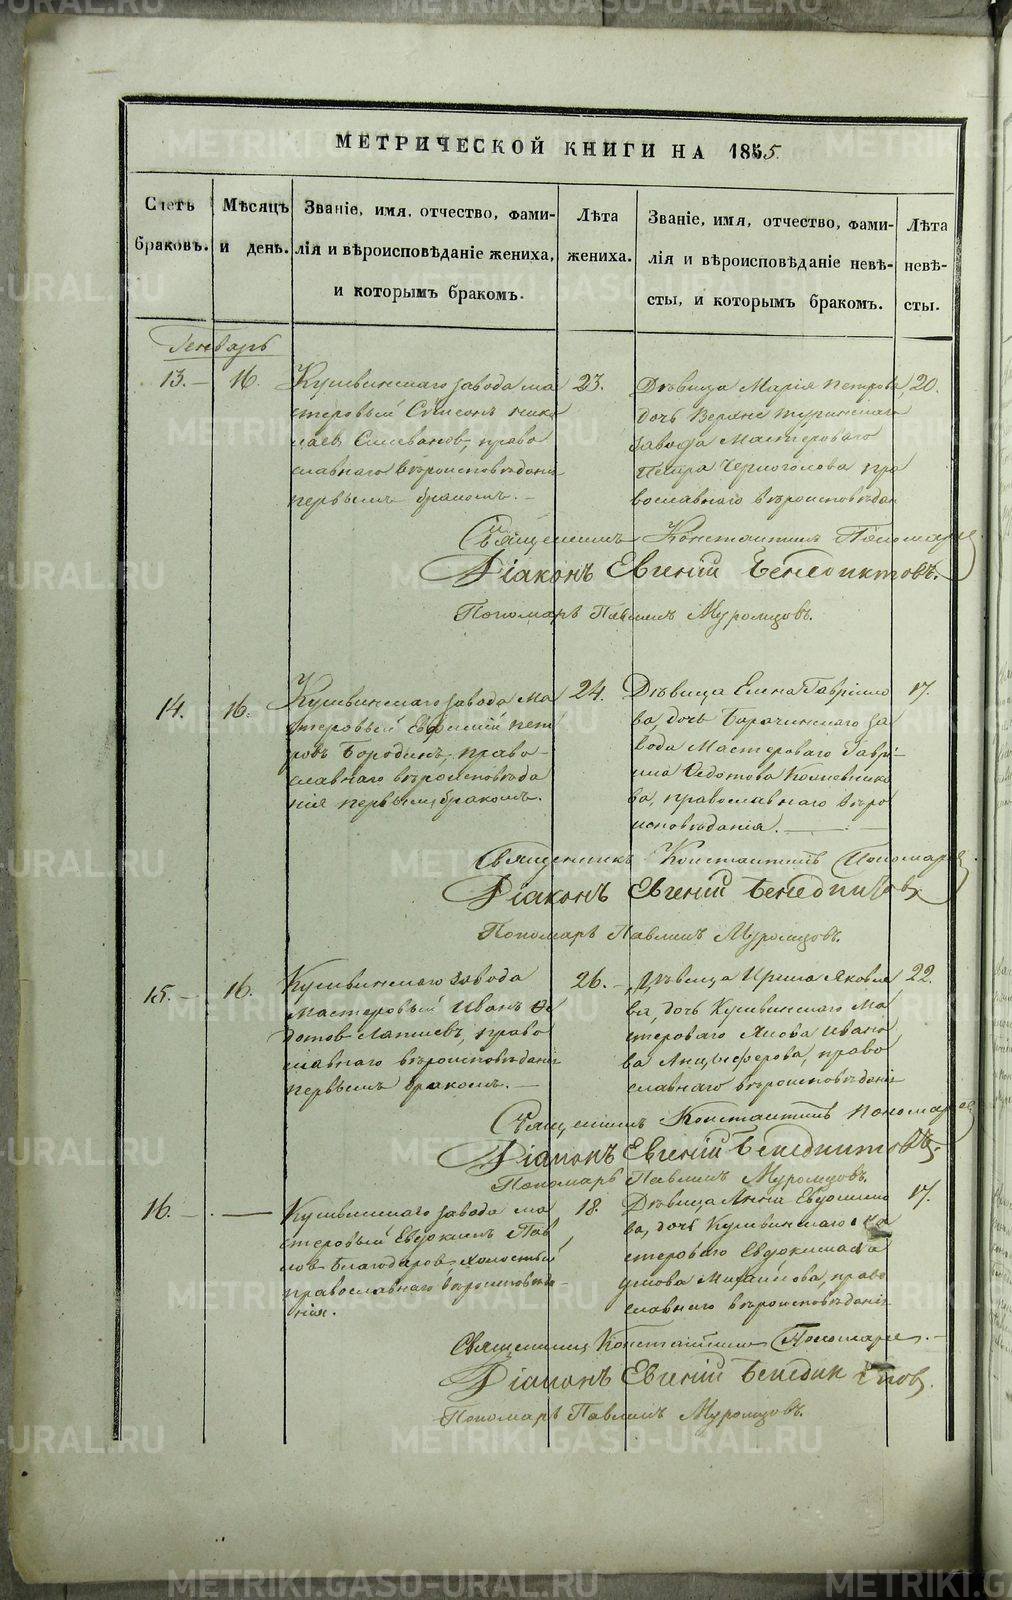 МЕТРИЧЕСКОЙ КНИГИ НА 1855.
Счетъ браковъ.
Мѣсяцъ и день.
Званіе, имя, отчество, фами-
лія и вѣроисповѣданіе жениха,
и которымъ бракомъ.
Лѣта жениха.
Званіе, имя, отчество, фами-
лія и вѣроисповѣданіе невѣ-
сты, и которымъ бракомъ.
Лѣта невѣ-
сты.
Генварь
13. – 16.
Кушвинскаго завода ма
стеровый Симеонъ Нико
лаевъ Селивановъ, право
славнаго вѣроисповѣданія
первымъ бракомъ. –
23.
Дѣвица Марія Петрова,
дочь Верхнетуринскаго
завода Мастероваго
Петра Черноголова пра
вославнаго вѣроисповѣдан
20.
Священникъ Константинъ Пономарев
Діаконъ Евгеній Бенедиктовъ.
Пономарь Павлинъ Муромцовъ.
14. 16.
Кушвинскаго завода Ма
стеровый Евфимій Пет
ровъ Бородинъ, право-
славнаго вѣроисповѣда
нія первымъ бракомъ.
24.
Дѣвица Елена Гаврило
ва, дочь Баранчинскаго за
вода Мастероваго Гаврі-
ила Федотова Кожевнико
ва, православнаго вѣро
исповѣданія.
17.
Священникъ Константинъ Пономарев
Діаконъ Евгеній Бенедиктовъ
Пономарь Павлинъ Муромцовъ.
15. – 16.
Кушвинскаго завода
мастеровый Иванъ Фе
дотов Лаптевъ, право
славнаго вѣроисповѣданія
первымъ бракомъ. –
26. –
Дѣвица Ирина Яковле
ва, дочь Кушвинскаго Ма
стероваго Якова Ивано
ва Анциферова, право
славнаго вѣроисповѣданія
22.
Священникъ Константинъ Пономарев
Діаконъ Евгеній Бенедиктовъ.
Пономарь Павлинъ Муромцовъ.
16. – . –
Кушвинскаго завода ма
стеровый Евдокимъ Пав
лов Благодаровъ, холостый
православнаго вѣроисповѣда-
нія.
18.
Дѣвица Анна Евдокимо
ва, дочь Кушвинскаго ма
стероваго Евдокима
Михайлова, право
славнаго вѣроисповѣданія
17.
Священникъ Константинъ Пономарев. –
Діаконъ Евгеній Бенедиктовъ.
Пономарь Павлинъ Муромцовъ.
METRIKI.GASO-URAL.RU